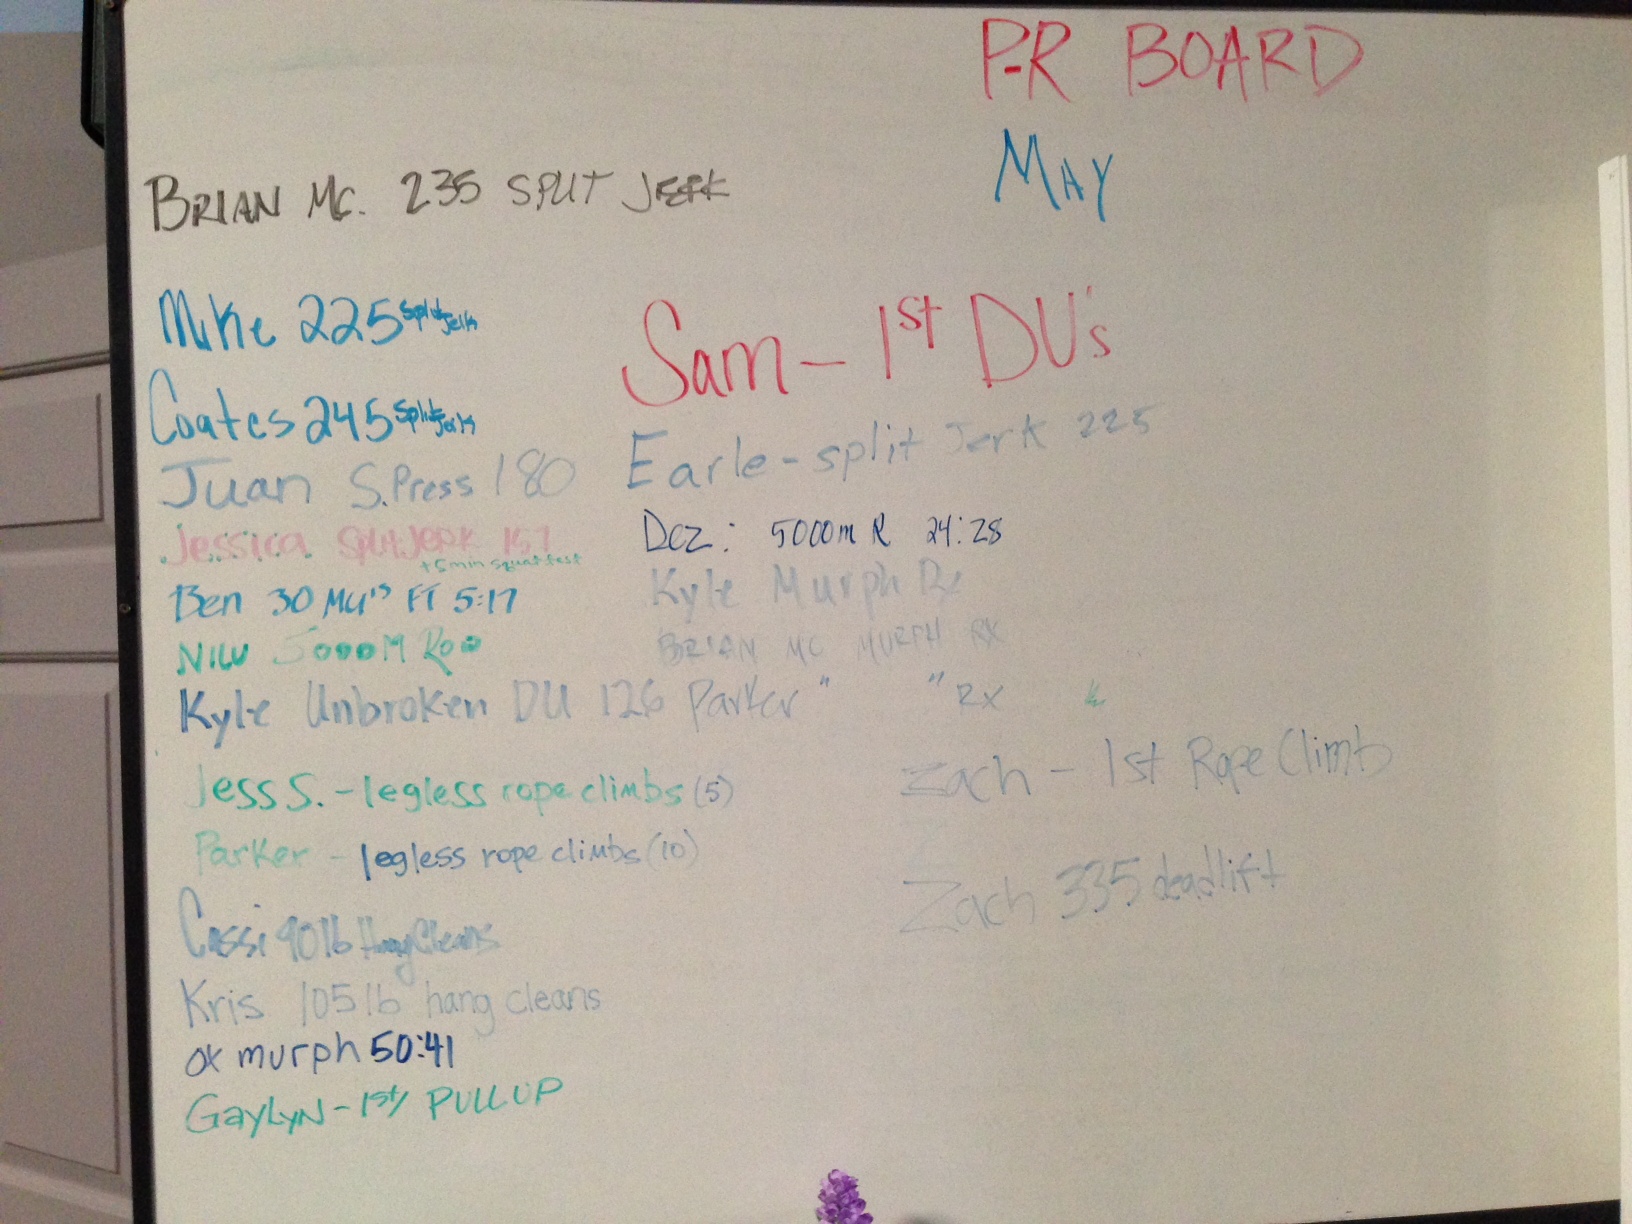 P-R BOARD
MAY
BRIAN MC. 235 SPLIT JERK
Mike 225 Split Jerk
Coates 245 Split Jerk
Juan S.Press 180
Jessica SPLIT JERK 157
+5min squat test
Ben 30 MU's FT 5:17
5000M Row
Kyle Unbroken DU 126
Jess S. - legless rope climbs (5)
Parker - legless rope climbs (10)
Cassi 90lb Hang Cleans
Kris 105lb hang cleans
OX murph 50:41
GayLyN - 1st PULLUP
Sam - 1st DU's
Earle - split Jerk 225
Dez: 5000m R 24:28
Kyle Murph Rx
BRIAN MC MURPH RX
Parker " " RX
Zach - 1st Rope Climb
Zach 335 deadlift